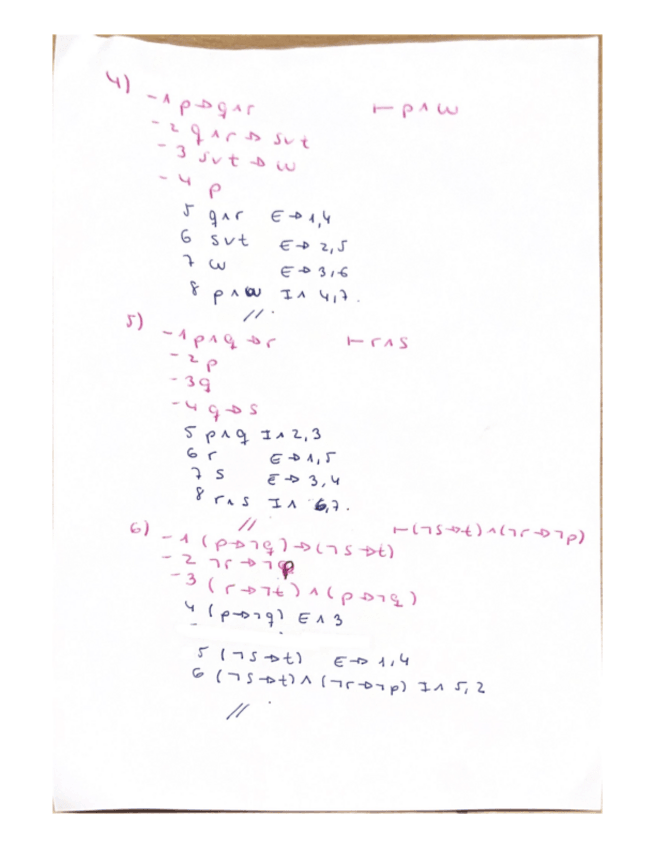 4)
-1 p→q∧r ⊢ p∧w
-2 q∧r → s∨t
-3 s∨t → w
-4 p
5 q∧r E→1,4
6 s∨t E→ 2,5
7 w E→3,6
8 p∧w I∧ 4,7.
//
5)
-1 p∧q →r ⊢ r∧s
-2 p
-3 q
-4 q→s
5 p∧q I∧ 2,3
6 r E→1,5
7 s E→3,4
8 r∧s I∧ 6,7.
//
6) ⊢(¬s→t)∧(¬r→¬p)
-1 (p→¬q)→(¬s→t)
-2 ¬r→¬p
-3 (r→¬t)∧(p→¬q)
4 (p→¬q) E∧3
5 (¬s→t) E→ 1,4
6 (¬s→t)∧(¬r→¬p) I∧ 5,2
//